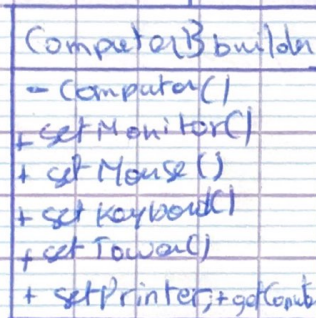 ComputerBbuilder
- Computer()
+ setMonitor()
+ set Mouse ()
+ set Keyboard()
+ set Tower()
+ setPrinter, + getComput